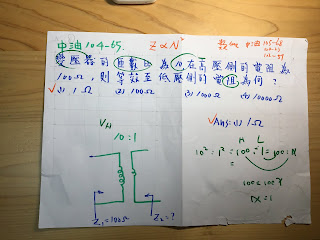 中油104-65. Z∝N²
變壓器的匝數比為10,在高壓側的電阻為
100Ω,則等效至低壓側的電阻為何?
✓(1) 1Ω (2) 100Ω (3) 1000Ω (4) 10000Ω
VH
10:1
Z₁=100Ω Z₂=?
✓Ans:(1) 1Ω
H L
10²:1²=100:1=100:X
=
100=100X
X=1